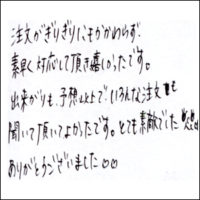 注文がぎりぎりにもかかわらず、
素早く対応して頂き嬉しかったです。
出来がりも、予想以上で、いろんな注文も
聞いて頂いてよかったです。とても素敵でした
ありがとうございました